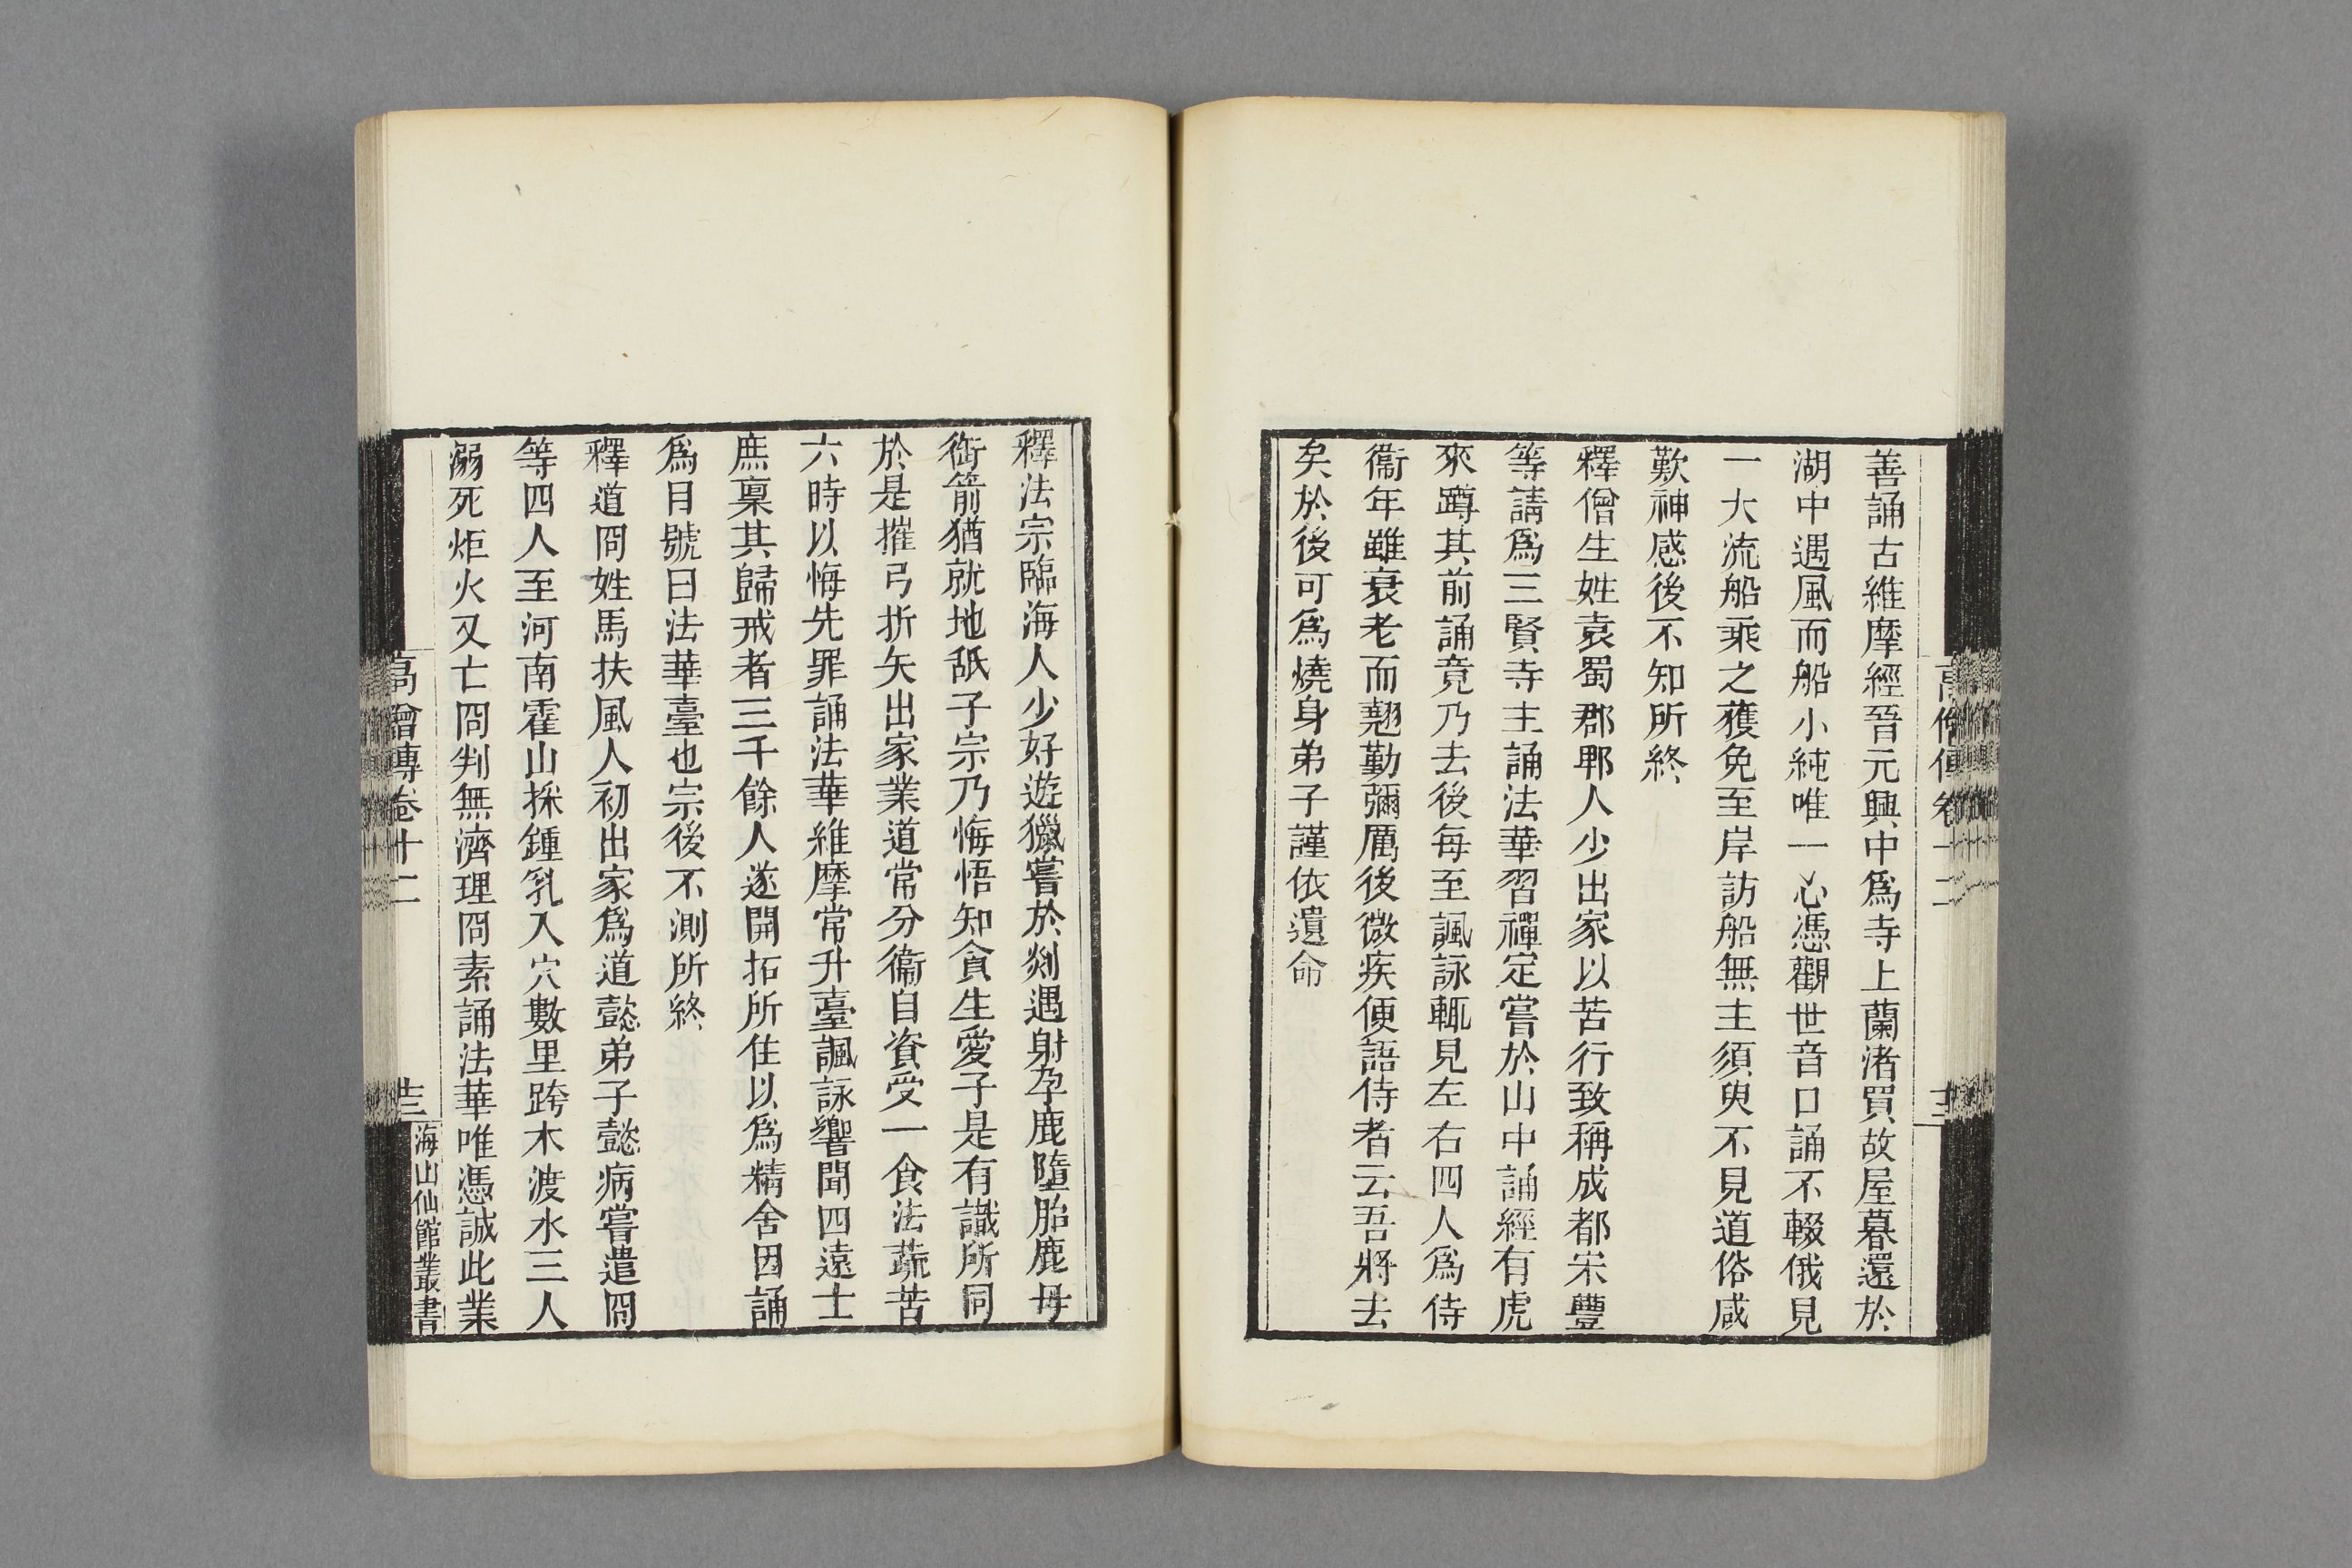 善誦古維摩經晉元興中爲寺上蘭渚買故屋暮還於
湖中遇風而船小純唯一心憑觀世音口誦不輟俄見
一大流船乘之獲免至岸訪船無主須臾不見道俗咸
歎神感後不知所終
釋僧生姓袁蜀郡郫人少出家以苦行致稱成都宋豐
等請爲三賢寺主誦法華習禪定嘗於山中誦經有虎
來蹲其前誦竟乃去後每至諷詠輒見左右四人爲侍
衞年雖衰老而翹勤彌厲後微疾便語侍者云吾將去
矣於後可爲燒身弟子謹依遺命
釋法宗臨海人少好遊獵嘗於剡遇射孕鹿墮胎鹿母
銜箭猶就地舐子宗乃悔悟知貪生愛子是有識所同
於是摧弓折矢出家業道常分衞自資受一食法蔬苦
六時以悔先罪誦法華維摩常升臺諷詠響聞四遠士
庶稟其歸戒者三千餘人遂開拓所住以爲精舍因誦
爲目號曰法華臺也宗後不測所終
釋道冏姓馬扶風人初出家爲道懿弟子懿病嘗遣冏
等四人至河南霍山採鍾乳入穴數里跨木渡水三人
溺死炬火又亡冏判無濟理冏素誦法華唯憑誠此業
高僧傳卷十二
十三
海山仙館叢書